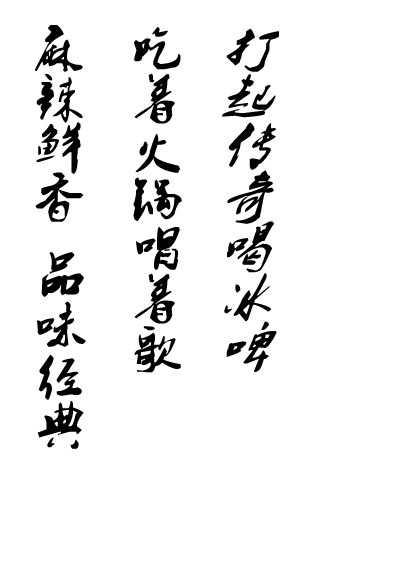 打起传奇喝冰啤
吃着火锅唱着歌
麻辣鲜香 品味经典